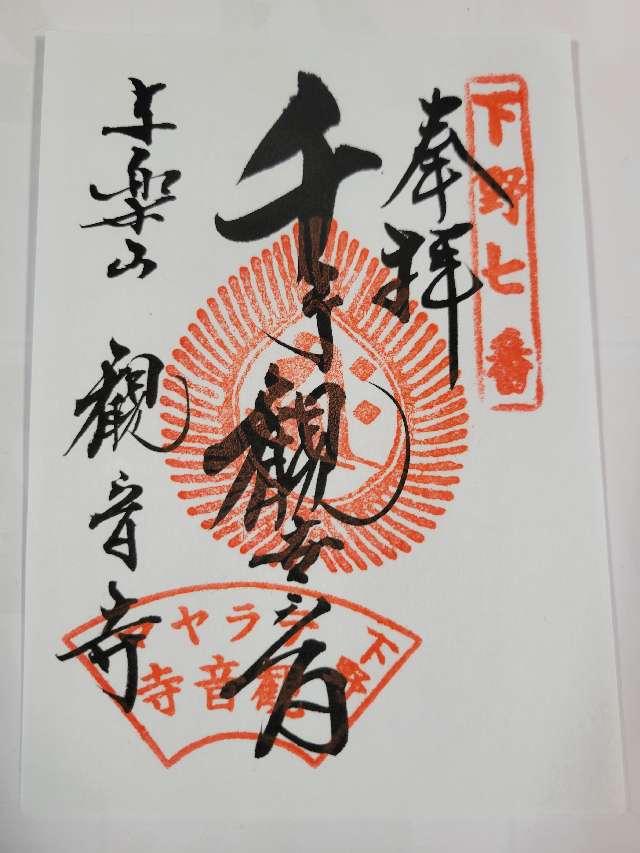 下野七番
奉拝
千手観世音
与楽山 観音寺
下野
テラヤマ
観音寺